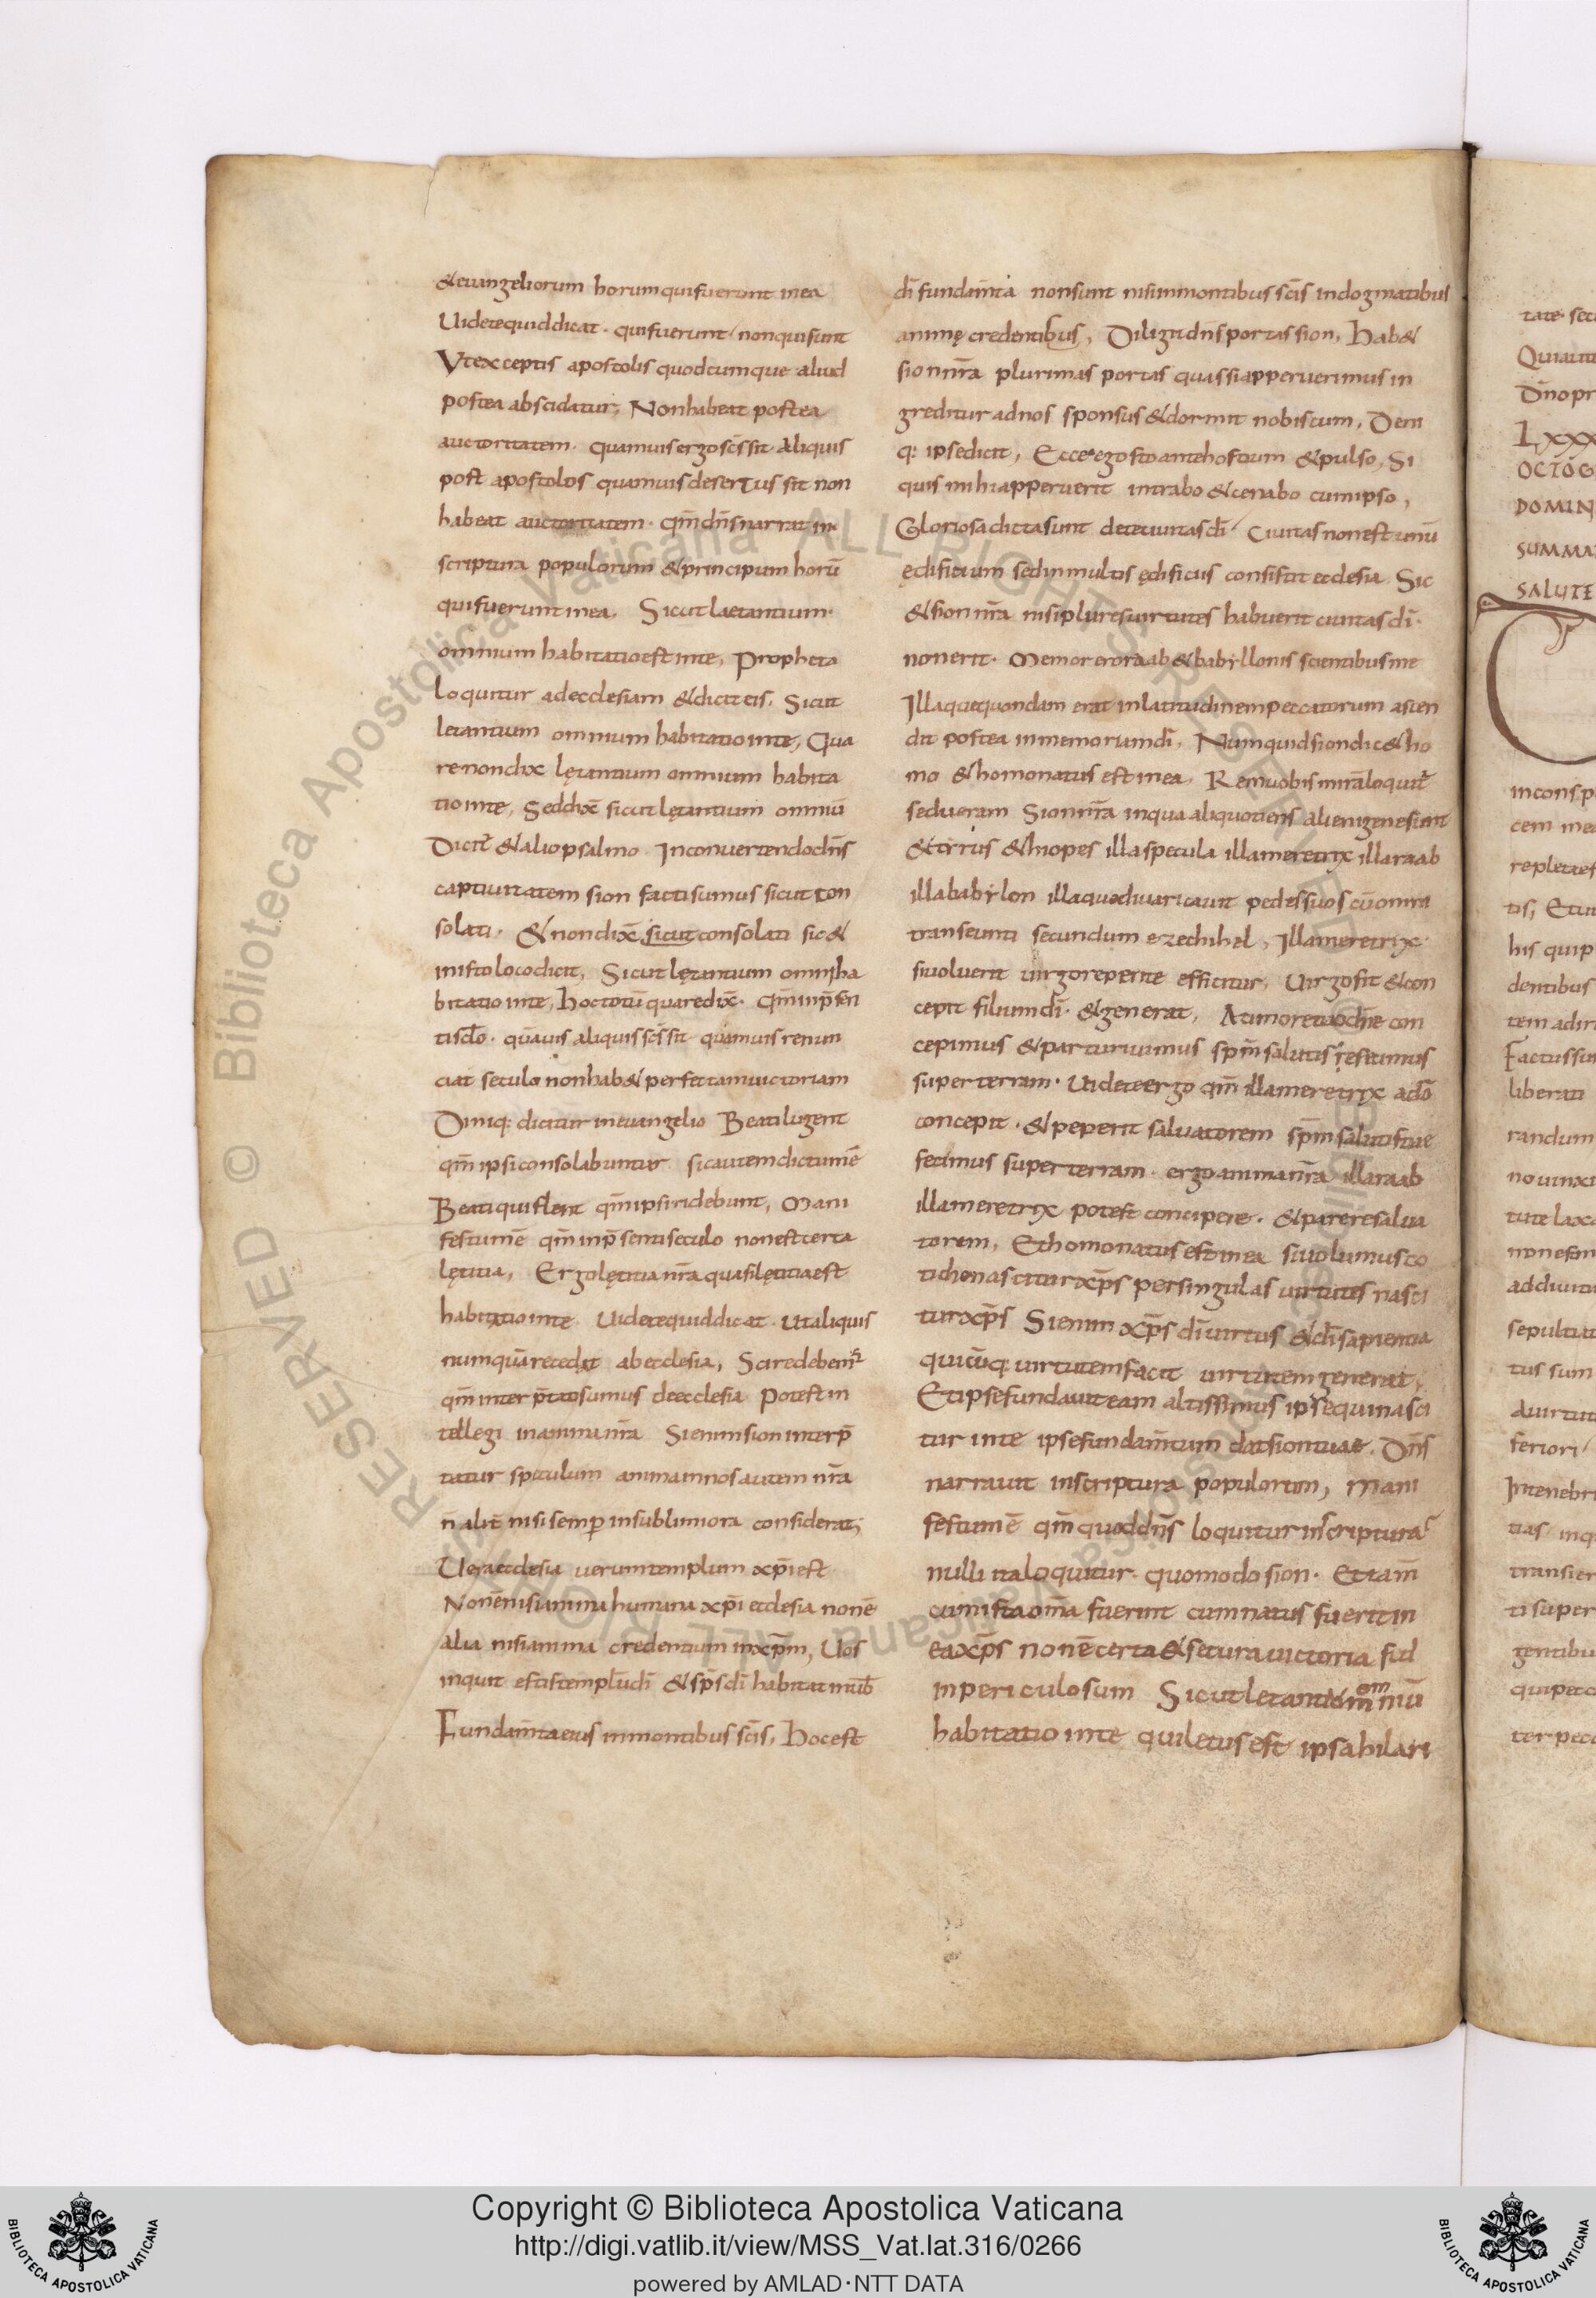 &euangeliorum horumquifuerunt inea
Uidetequiddicat· quifuerunt nonquisunt
Vtexceptis apostolis quodcumque aliud
postea abscidatur, Nonhabeat postea
auctoritatem· quamuisergosc̄ssit aliquis
post apostolos quamuisdesertus sit non
habeat auctoritatem· qm̄dn̄snarrat in
scriptura populorum &principum horū
quifueruntinea. Sicutlaetantium·
omnium habitatioestinte, Propheta
loquitur adecclesiam &diciteis. Sicut
letantium omnium habitatiointe, Qua
renondix̄ lętantium omnium habita
tiointe, Seddix̄ sicutlętantium omniū
Dicit̄ &aliopsalmo Inconuertendodn̄s
captiuitatem sion factisumus sicut con
solati· &nondix̄ sicutconsolati sic&
inistolocodicit, Sicutlętantium omniha
bitatiointe, hoctotū quaredix̄· qm̄inp̄sen
tisclo· quāuis aliquisscs̄sit quamuisrenun
ciat seculo nonhab&perfectamuictoriam
Diniq: dicitur ineuangelio Beatilugent
qm̄ipsiconsolabuntur sicautemdictumē
Beatiquiflent qm̄ipsiridebunt, Mani
festumē qm̄inp̄sentiseculo nonestcerta
lętitia, Ergolętitian̄ra quasilętitiaest
habitatiointe Uidetequiddicat· Utaliquis
numquārecedat abecclesia, Sciredebem̄
qm̄interp̄tatosumus deecclesia Potestin
tellegi inaniman̄ra Sienimsioninterp̄
tatur speculum animamnosautem n̄ra
n̄aliē nisisemp̄insublimiora considerat;
Ueraecclesia uerumtemplum xp̄iest
Nonēnisianima humana xp̄i ecclesia nonē
alia nisianima credentium inxp̄m, Uos
inquit estistemplūdi̅ &sp̄sdi̅ habitatinuob̄
Fundam̄taeius inmontibussc̄is, Hocest
di̅ fundam̄ta nonsunt nisiinmontibus sc̄is indogmatibus
animę credentibus, Diligitdn̄sportassion, Hab&
sionn̄ra plurimas portas quassiapperuerimus in
greditur adnos sponsus&dormit nobiscum, Deni
q: ipsedicit, Ecceegostoantehostium &pulso, Si
quis mihiapperuerit intrabo &cenabo cumipso,
Gloriosadictasunt deteciuitasdi̅ Ciuitasnonestunū
ędificium sedinmultis ędificiis consistit ecclesia. Sic
&sionn̄ra nisipluresuirtutes habuerit ciuitasdi̅·
nonerit· Memoreroraab&babyllonis scientibusme
Illaquequondam erat inlatitudinempeccatorum ascen
dit postea inmemoriamdi̅, Numquidsiondic&ho
mo &homonatus estinea, Remuobismirāloquit̄
sedueram Sionn̄ra inquaaliquotiens alienigenesunt
&tirus &hiopes illaspecula illameretrix illaraab
illababylon illaquediuaricauit pedessuos cūomni
transeunti secundum ezechihel, Illameretrix
siuoluerit uirgorepente efficitur, Uirgofit &con
cepit filiumdi̅· &generat, Atimoretuodn̄e con
cepimus &parturiuimus sp̄msalutis fecimus
superterram· Uideteergo qm̄ illameretrix ado̅
concepit· &peperit saluatorem sp̄msalutistue
fecimus superterram· ergoaniman̄ra illaraab
illameretrix potest concipere· &pareresalua
torem, Ethomonatusestinea siuolumusco
tidienasciturxp̄s persingulas uirtutes nasci
turxp̄s Sienim xp̄s di̅uirtus &di̅sapientia
quicūq· uirtutemfacit uirtutemgenerat,
Etipsefundauiteam altissimus ipsequinasci
tur inte ipsefundam̄tum datsiontuae. Dn̄s
narrauit inscriptura populorum, mani
festumē qm̄quoddn̄s loquiturinscripturas
nulli italoquitur quomodosion· Etiam̄
cumistaom̄a fuerint cumnatus fueritin
eaxp̄s nonēcerta&securauictoria sed
inpericulosum Sicutletantiū omniū
habitatio inte quiletusest ipsahilari
tate sec
Quiaut
Dn̄opr
Lxxx
OCTOG
DOMIN
SUMMA
SALUTE
incons.p
cem mea
repletaes
tis, Etui
his quip
dentibus
tem adiri
Factussu
liberati
randum
nouinxi
tutelaxa
nonesin
addiuiti
sepultat
tus sum
auirtut
feriori
Intenebri
tias inq
transier
tisuper
gentibu
quipecc
terpecc
© Biblioteca Apostolica Vaticana ALL RIGHTS RESERVED
Copyright © Biblioteca Apostolica Vaticana
http://digi.vatlib.it/view/MSS_Vat.lat.316/0266
powered by AMLAD·NTT DATA
BIBLIOTECA APOSTOLICA VATICANA
BIBLIOTECA APOSTOLICA VATICANA